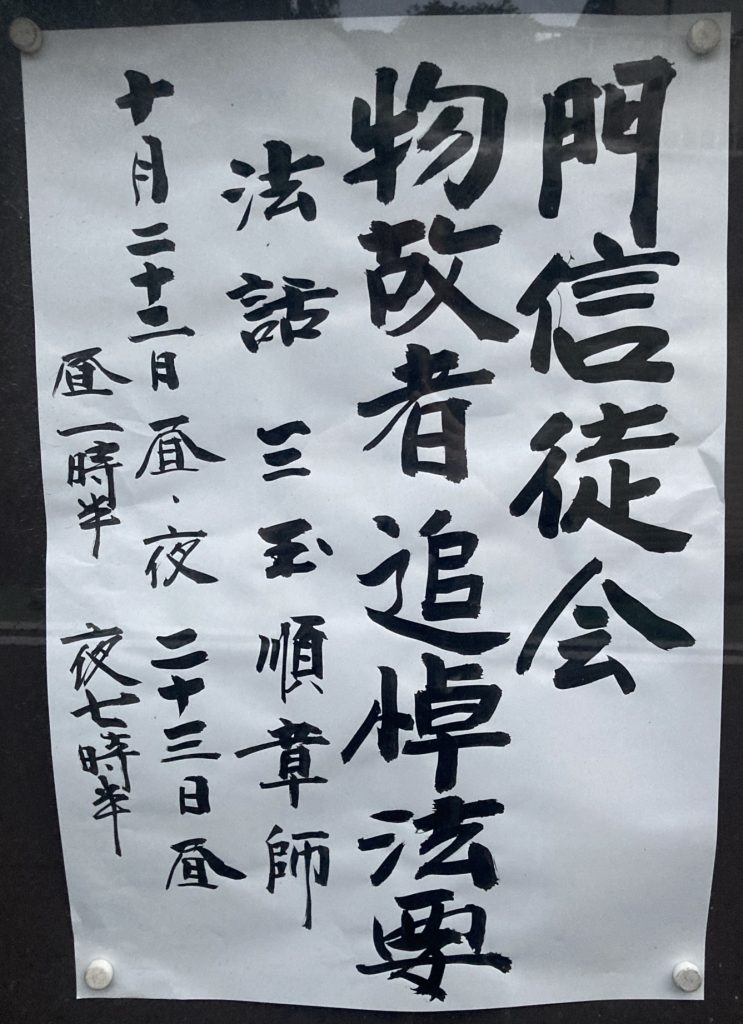 門信徒会
物故者追悼法要
法話 三玉順章師
十月二十二日昼・夜 二十三日昼
昼一時半 夜七時半